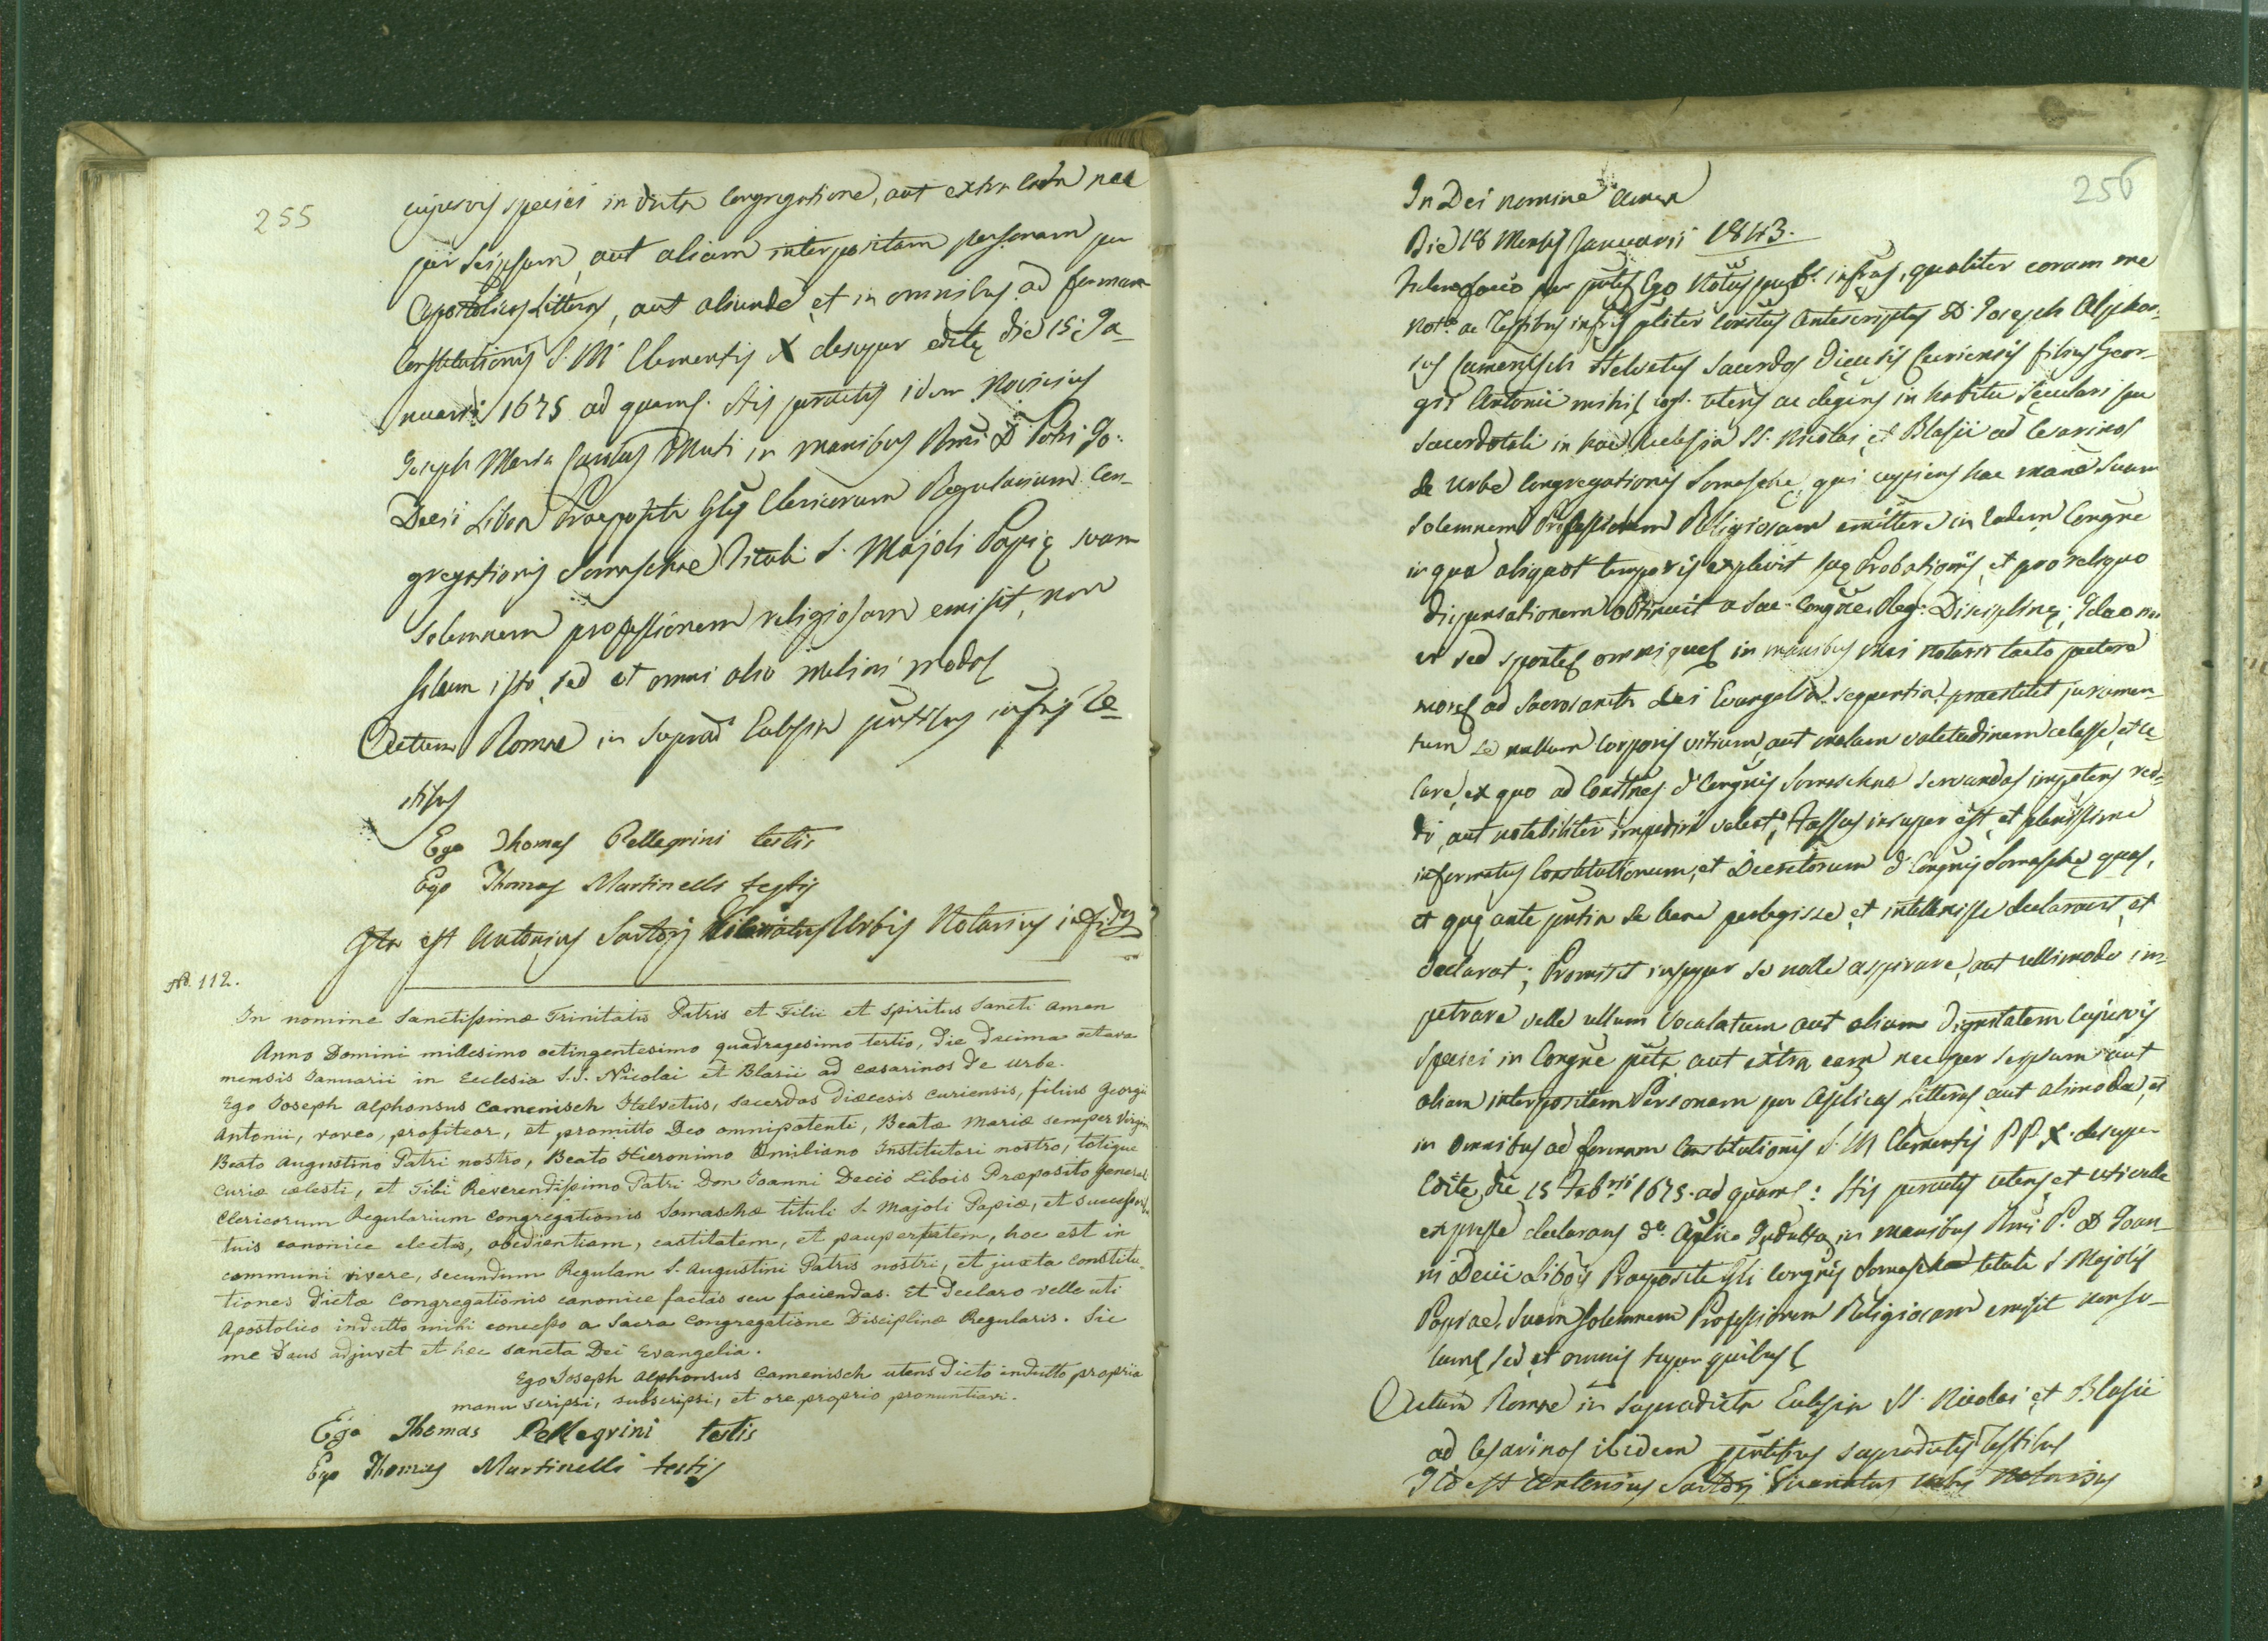 255
cujusvis speciei in dicta Congregatione, aut extra eadn nec
per seipsum, aut aliam interpositam personam per
Apostolicas Litteras, aut aliunde et in omnibus ad formam
Constitutionis S. M. Clementis X desuper editę die 15 Ja-
nuarii 1675 ad quam. His peractis idem Novitius
Joseph Maria Muti in manibus Rmi D. Pris Jo:
Decii Libois Praepositi Glis Clericorum Regularium Con-
gregationis Somaschae Tituli S. Majoli Papię suam
solemnem professionem religiosam emisit, non
solum isto, sed et omni alio meliori modo
Actum Romae in suprad Ecclesia pntibus infris Te-
stibus
Ego Thomas Pellegrini testis
Ego Thomas Martinelli testis
Ita est Antonius Sartorj Urbis Notarius
No. 112.
In nomine Sanctissimæ Trinitatis Patris et Filii et Spiritus Sancti amen
Anno Domini millesimo octingentesimo quadragesimo tertio, die decima octava
mensis Januarii in Ecclesia S.S. Nicolai et Blasii ad cæsarinos de urbe.
Ego Joseph Alphonsus Camenisch Helvetus, sacerdos diœcesis curiensis, filius Georgii
Antonii, voveo, profiteor, et promitto Deo omnipotenti, Beatæ Mariæ semper Virgini
Beato Augustino Patri nostro, Beato Hieronimo Æmiliano Institutori nostro, totique
Curiæ cœlesti, et Tibi Reverendissimo Patri Don Joanni Decio Libois Præposito general
Clericorum Regularium Congregationis Somaschæ tituli S. Majoli Papiæ, et successorib
tuis canonice electis, obedientiam, castitatem, et paupertatem, hoc est in
communi vivere, secundum Regulam S. Augustini Patris nostri, et juxta constitu-
tiones dictæ Congregationis canonice factas seu faciendas. Et declaro velle uti
Apostolico indulto mihi concesso a Sacra Congregatione Disciplinæ Regularis. Sic
me Deus adjuvet et hæc sancta Dei Evangelia.
Ego Joseph Alphonsus Camenisch utens dicto indulto propria
manu scripsi, subscripsi, et ore proprio pronuntiavi.
Ego Thomas Pellegrini testis
Ego Thomas Martinelli testis
256
In Dei nomine Amen
Die 18 Mensis Januarii 1843.
Ego Notus infrus, qualiter coram me
Noto ac Testibus infris pliter constus antescriptus D. Joseph Alphon-
sus Camenisch Helvetus Sacerdos Diecesis Curiensis filius Geor-
gii Antonii mihi cogt. utens ac degens in habitu seculari seu
sacerdotali in hac Ecclesia SS. Nicolai, et Blasii ad Cesarinos
de Urbe Congregationis Somaschę, qui cupiens hac mane suam
solemnem Professionem Religiosam emittere in eadem Congne
in qua aliquot temporis explevit suę Probationis, et pro reliquo
dispensationem obtinuit a Sac. Congne Reg. Disciplinę; Ideo
sed sponte omnique in manibus mei Notarii tacto pectore
more ad Sacrosancta Dei Evangelia praestitit juramen-
tum se nullum corporis vitium, aut malam valetudinem celasse, et ce-
lare, ex quo ad Constnes d. Congnis Somaschae servandas impotens red-
di, aut notabiliter impediri valeat; Fassus insuper est, et plenissime
informatus Constitutionum, et Decretorum d. Congnis Somaschę quas,
et quę ante pntia se bene perlegisse, et intellexisse declaravit, et
declarat; Promisit insuper se nolle aspirare, aut ullimodo im-
petrare velle ullum Vocalatum aut aliam dignitatem cujusvis
speciei in Congne pnta, aut extra eam nec per seipsum aut
aliam interpositam Personam per Aplicas Litteras aut alimode, et
in omnibus ad formam Constitutionis S. M. Clementis PP. X. desuper
edite, die 15 Febrii 1675. ad quam: His peractis utens et uti velle
expresse declarans do. Aplico Indulto, in manibus Rmi P. D. Joan-
ni Decii Libois Praepositi Gli Congnis Somaschae tituli S. Majolis
Papiae, suam solemnem Professionem Religiosam emisit non so-
lum sed et omnis super quibus
Actum Romae in supradicta Ecclesia SS. Nicolai, et Blasii
ad Cesarinos ibidem pntibus supradictis Testibus
Ita est Antonius Sartorj Notarius